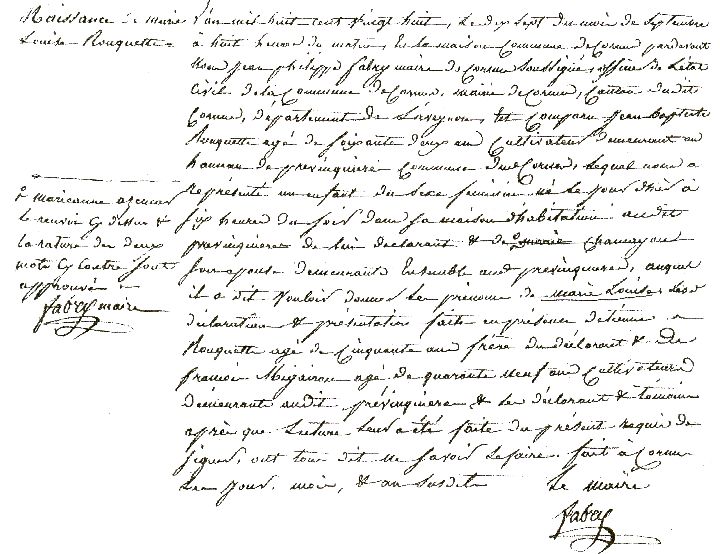 Naissance de Marie
Louise Rouquette
L'an mil huit cent vingt huit, Le dix sept du mois de Septembre
à huit heures du matin, En la maison Commune de Cornus pardevant
Nous Jean philippe fabry maire de Cornus Soussigné, officier de L'état
Civil de la Commune de Cornus, mairie de Cornus, Canton dudit
Cornus, département de L'aveyron, Est Comparu Jean Baptiste
Rouquette agé de soixante deux ans Cultivateur demeurant au
hameau de prévinquières Commune dud. Cornus, Lequel nous a
représenté un enfant du Sexe feminin né Le jour d'hier à
six heures du soir dans sa maison d'habitation audit
prévinquières de lui déclarant & de marie
son epouse demeurants Ensemble aud. prévinquières, auquel
il a dit vouloir donner Le prénom de marie Louise Lesd.
déclaration & présentation faite en présence d'étienne
Rouquette agé de Cinquante ans frère du déclarant & de
françois agé de quarante neuf ans Cultivateurs
demeurants audit prévinquières & Les déclarant & témoins
après que Lecture Leur a été faite du présent requis de
signer, ont tous dit ne savoir Le faire. fait à Cornus
Les jour, mois, & an susdits
Le maire
fabry
marieanne
le renvoi Cy dessus &
la rature des deux
mots Cy Contre sont
approuvés
fabry maire